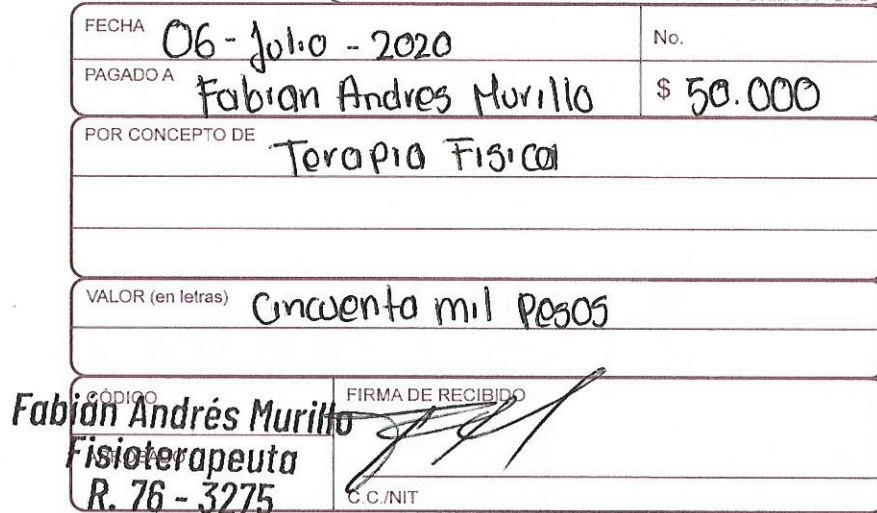 FECHA 06 - Julio - 2020 No.
PAGADO A Fabian Andres Murillo $ 50.000
POR CONCEPTO DE Terapia Fisica
VALOR (en letras) Cincuenta mil Pesos
CÓDIGO FIRMA DE RECIBIDO
Fabián Andrés Murillo
APROBADO
Fisioterapeuta
R. 76 - 3275
C.C./NIT